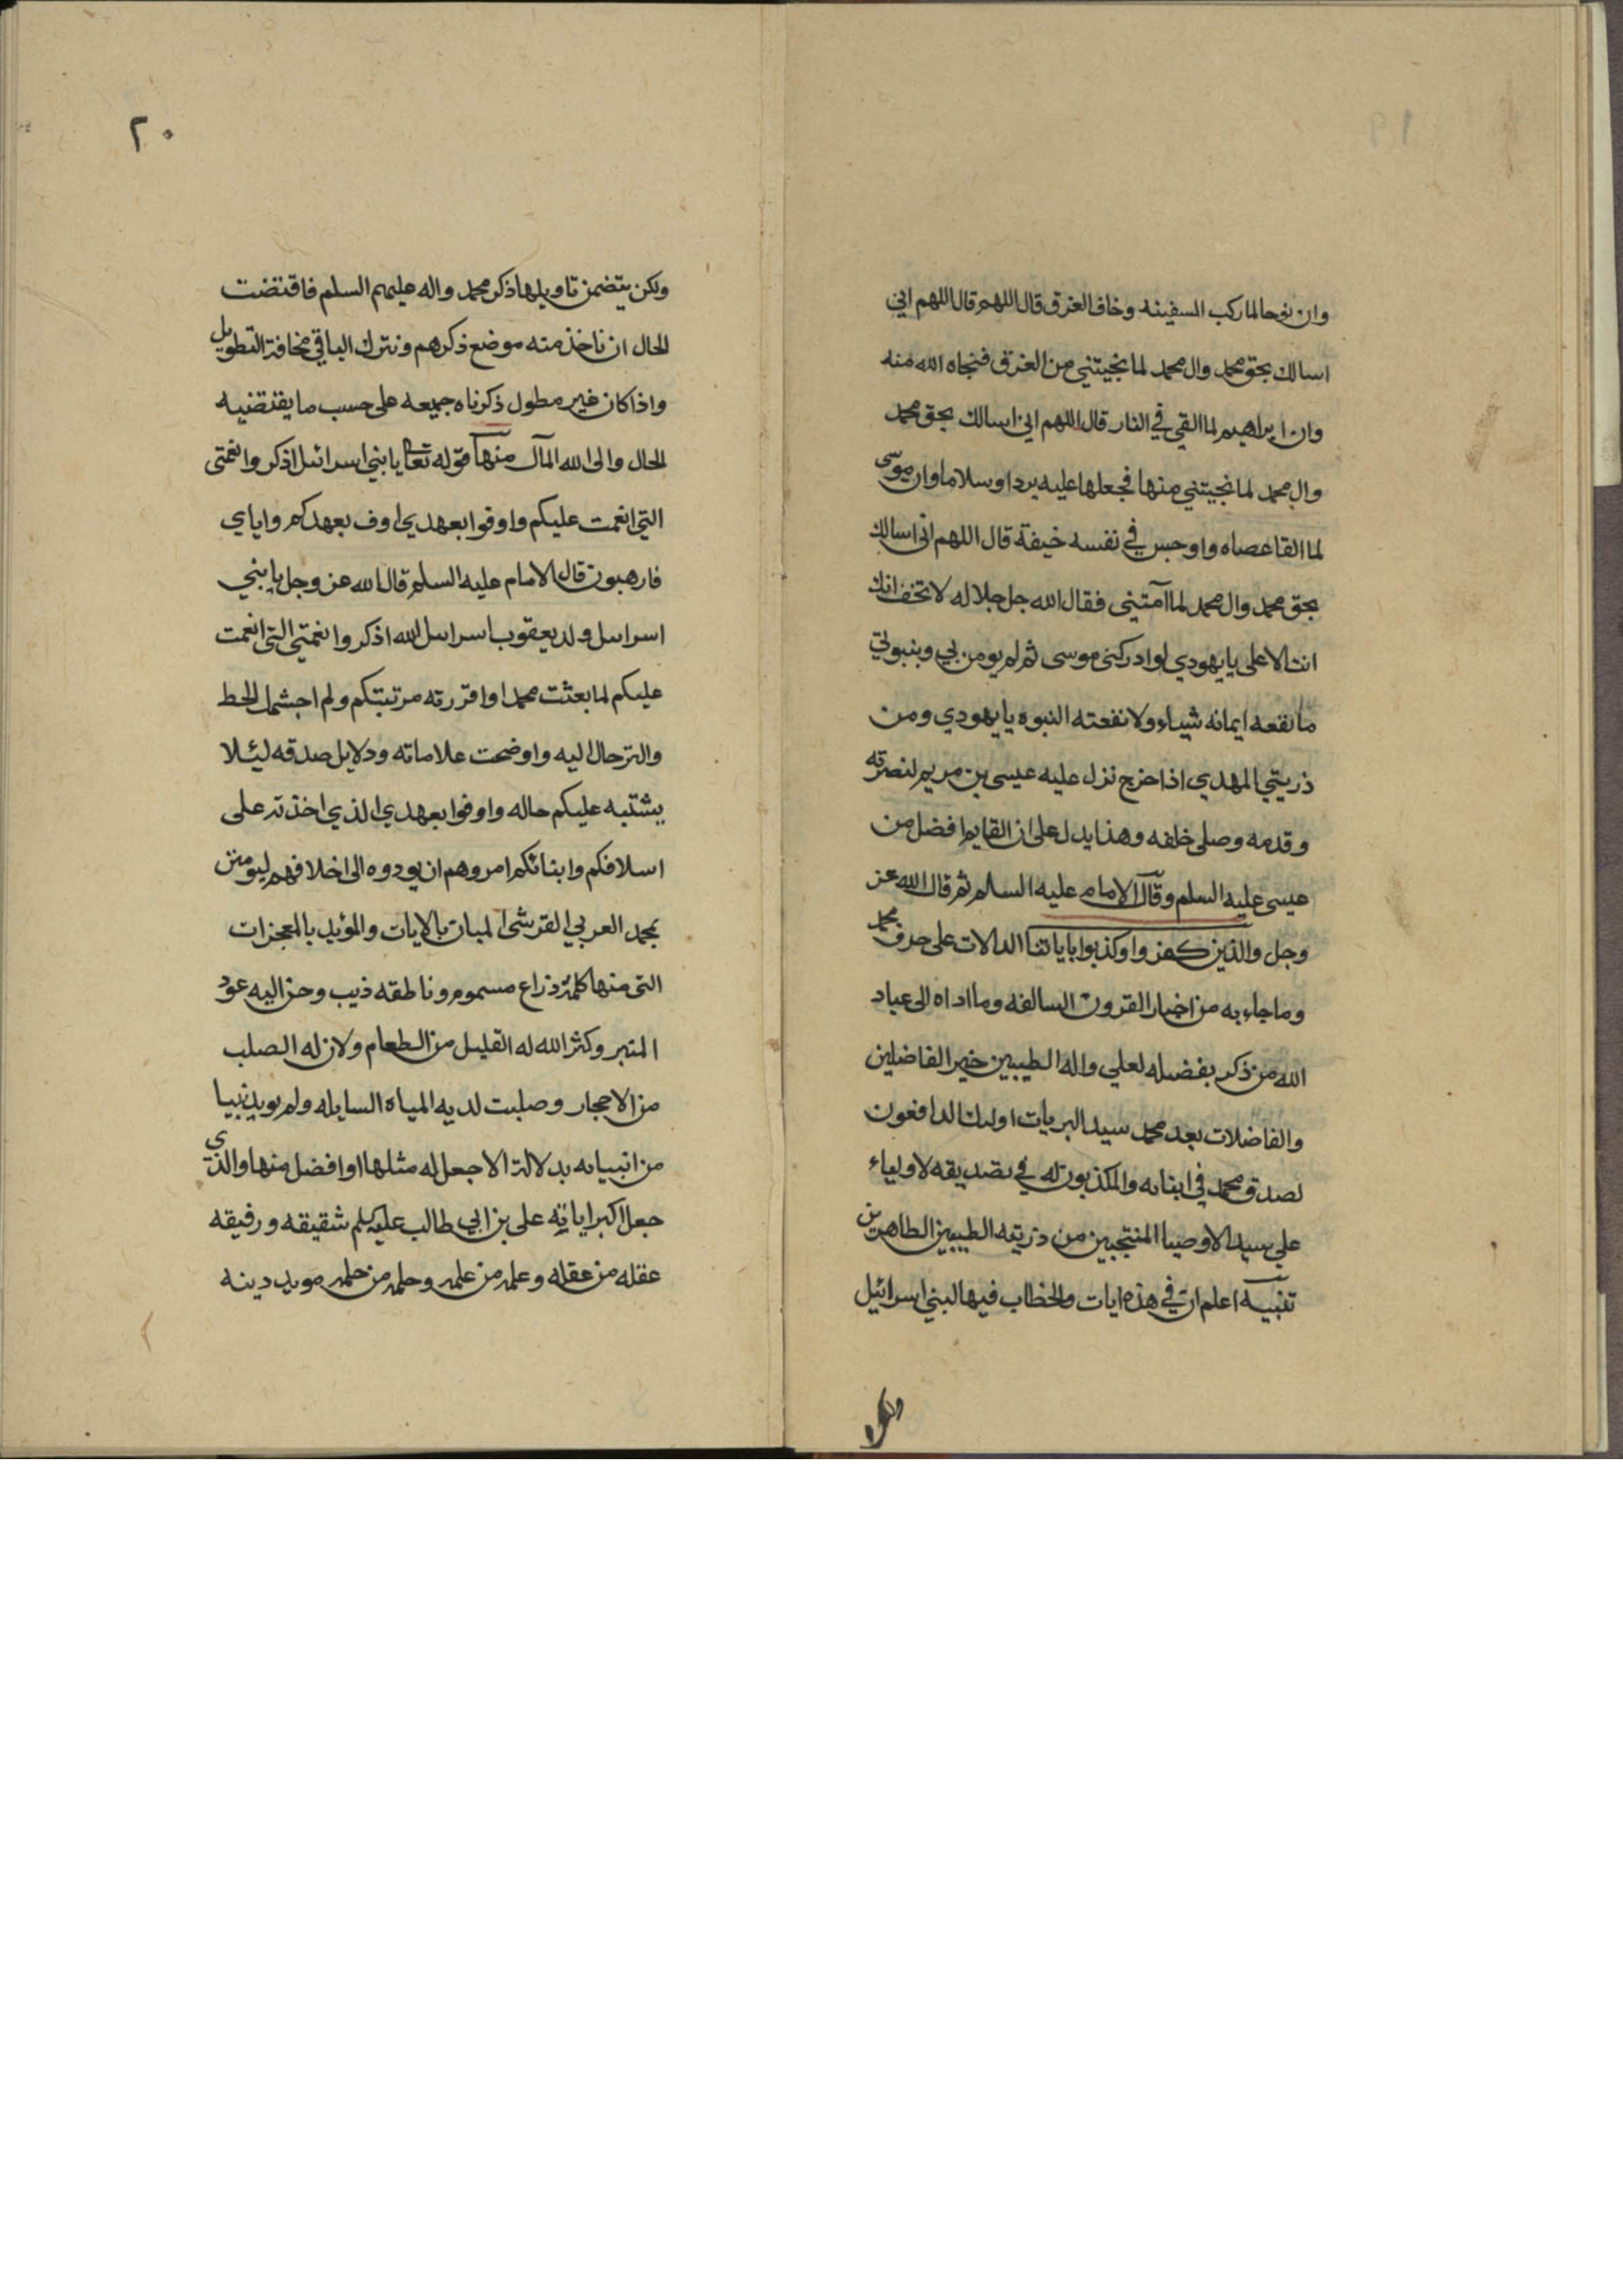 وان نوحا لما ركب السفينه وخاف الغرق قال اللهم قال اللهم اني
اسالك بحق محمد وال محمد لما نجيتني من الغرق فنجاه الله منه
وان ابراهيم لما القي في النار قال اللهم اني اسالك بحق محمد
وال محمد لما نجيتني منها فجعلها عليه بردا وسلاما وان موسى
لما القا عصاه واوجس في نفسه خيفة قال اللهم اني اسالك
بحق محمد وال محمد لما آمنتني فقال الله جل جلاله لا تخف انك
انت الاعلى يا يهودي لو ادركني موسى ثم لم يومن بي وبنبوتي
ما نفعه ايمانه شياء ولا نفعته النبوه يا يهودي ومن
ذريتي المهدي اذا خرج نزل عليه عيسى بن مريم لنصرته
وقدمه وصلى خلفه وهذا يدل على ان القايم افضل من
عيسى عليه السلم وقال الامام عليه السلم ثم قال الله عز
وجل والذين كفروا وكذبوا باياتنا الدالات على صدق محمد
وما جاء به من اخبار القرون السالفه وما اداه الى عباد
الله من ذكر بفضله لعلي واله الطيبين خير الفاضلين
والفاضلات بعد محمد سيد البريات اولئك الدافعون
لصدق محمد في ابنائه والمكذبون له في تصديقه لاولياء
علي سيد الاوصيا المنتجبين من ذريته الطيبين الطاهرين
تنبيه اعلم ان في هذه ايات والخطاب فيها لبني اسرائيل
ولكن
٢٠
ولكن يتضمن تاويلها ذكر محمد واله عليهم السلم فاقتضت
الحال ان ناخذ منه موضع ذكرهم ونترك الباقي مخافة التطويل
واذا كان غير مطول ذكرناه جميعه على حسب ما يقتضيه
الحال والى الله المآل منها قوله تعالى يا بني اسرائيل اذكروا نعمتي
التي انعمت عليكم واوفوا بعهدي اوف بعهدكم واياي
فارهبون قال الامام عليه السلم قال الله عز وجل يا بني
اسرايل ولد يعقوب اسرايل الله اذكروا نعمتي التي انعمت
عليكم لما بعثت محمدا واقررته مرتبتكم ولم اجشمل الحط
والترحال اليه واوضحت علاماته ودلايل صدقه ليئلا
يشتبه عليكم حاله واوفوا بعهدي الذي اخذته على
اسلافكم وابنائكم امروهم ان يودوه الى اخلافهم ليومنن
بمحمد العربي القرشي المبان بالايات والمؤيد بالمعجزات
التي منها كلمة ذراع مسموم وناطقه ذيب وحن اليه عود
المنبر وكثر الله له القليل من الطعام ولان له الصلب
من الاحجار وصلبت لديه المياه السايله ولم يويد نبيا
من انبيائه بدلالة الا جعل له مثلها او افضل منها والذي
جعل اكبر اياته علي بن ابي طالب عليه سلم شقيقه ورفيقه
عقله من عقله وعلمه من علمه وحلمه من حلمه مويد دينه